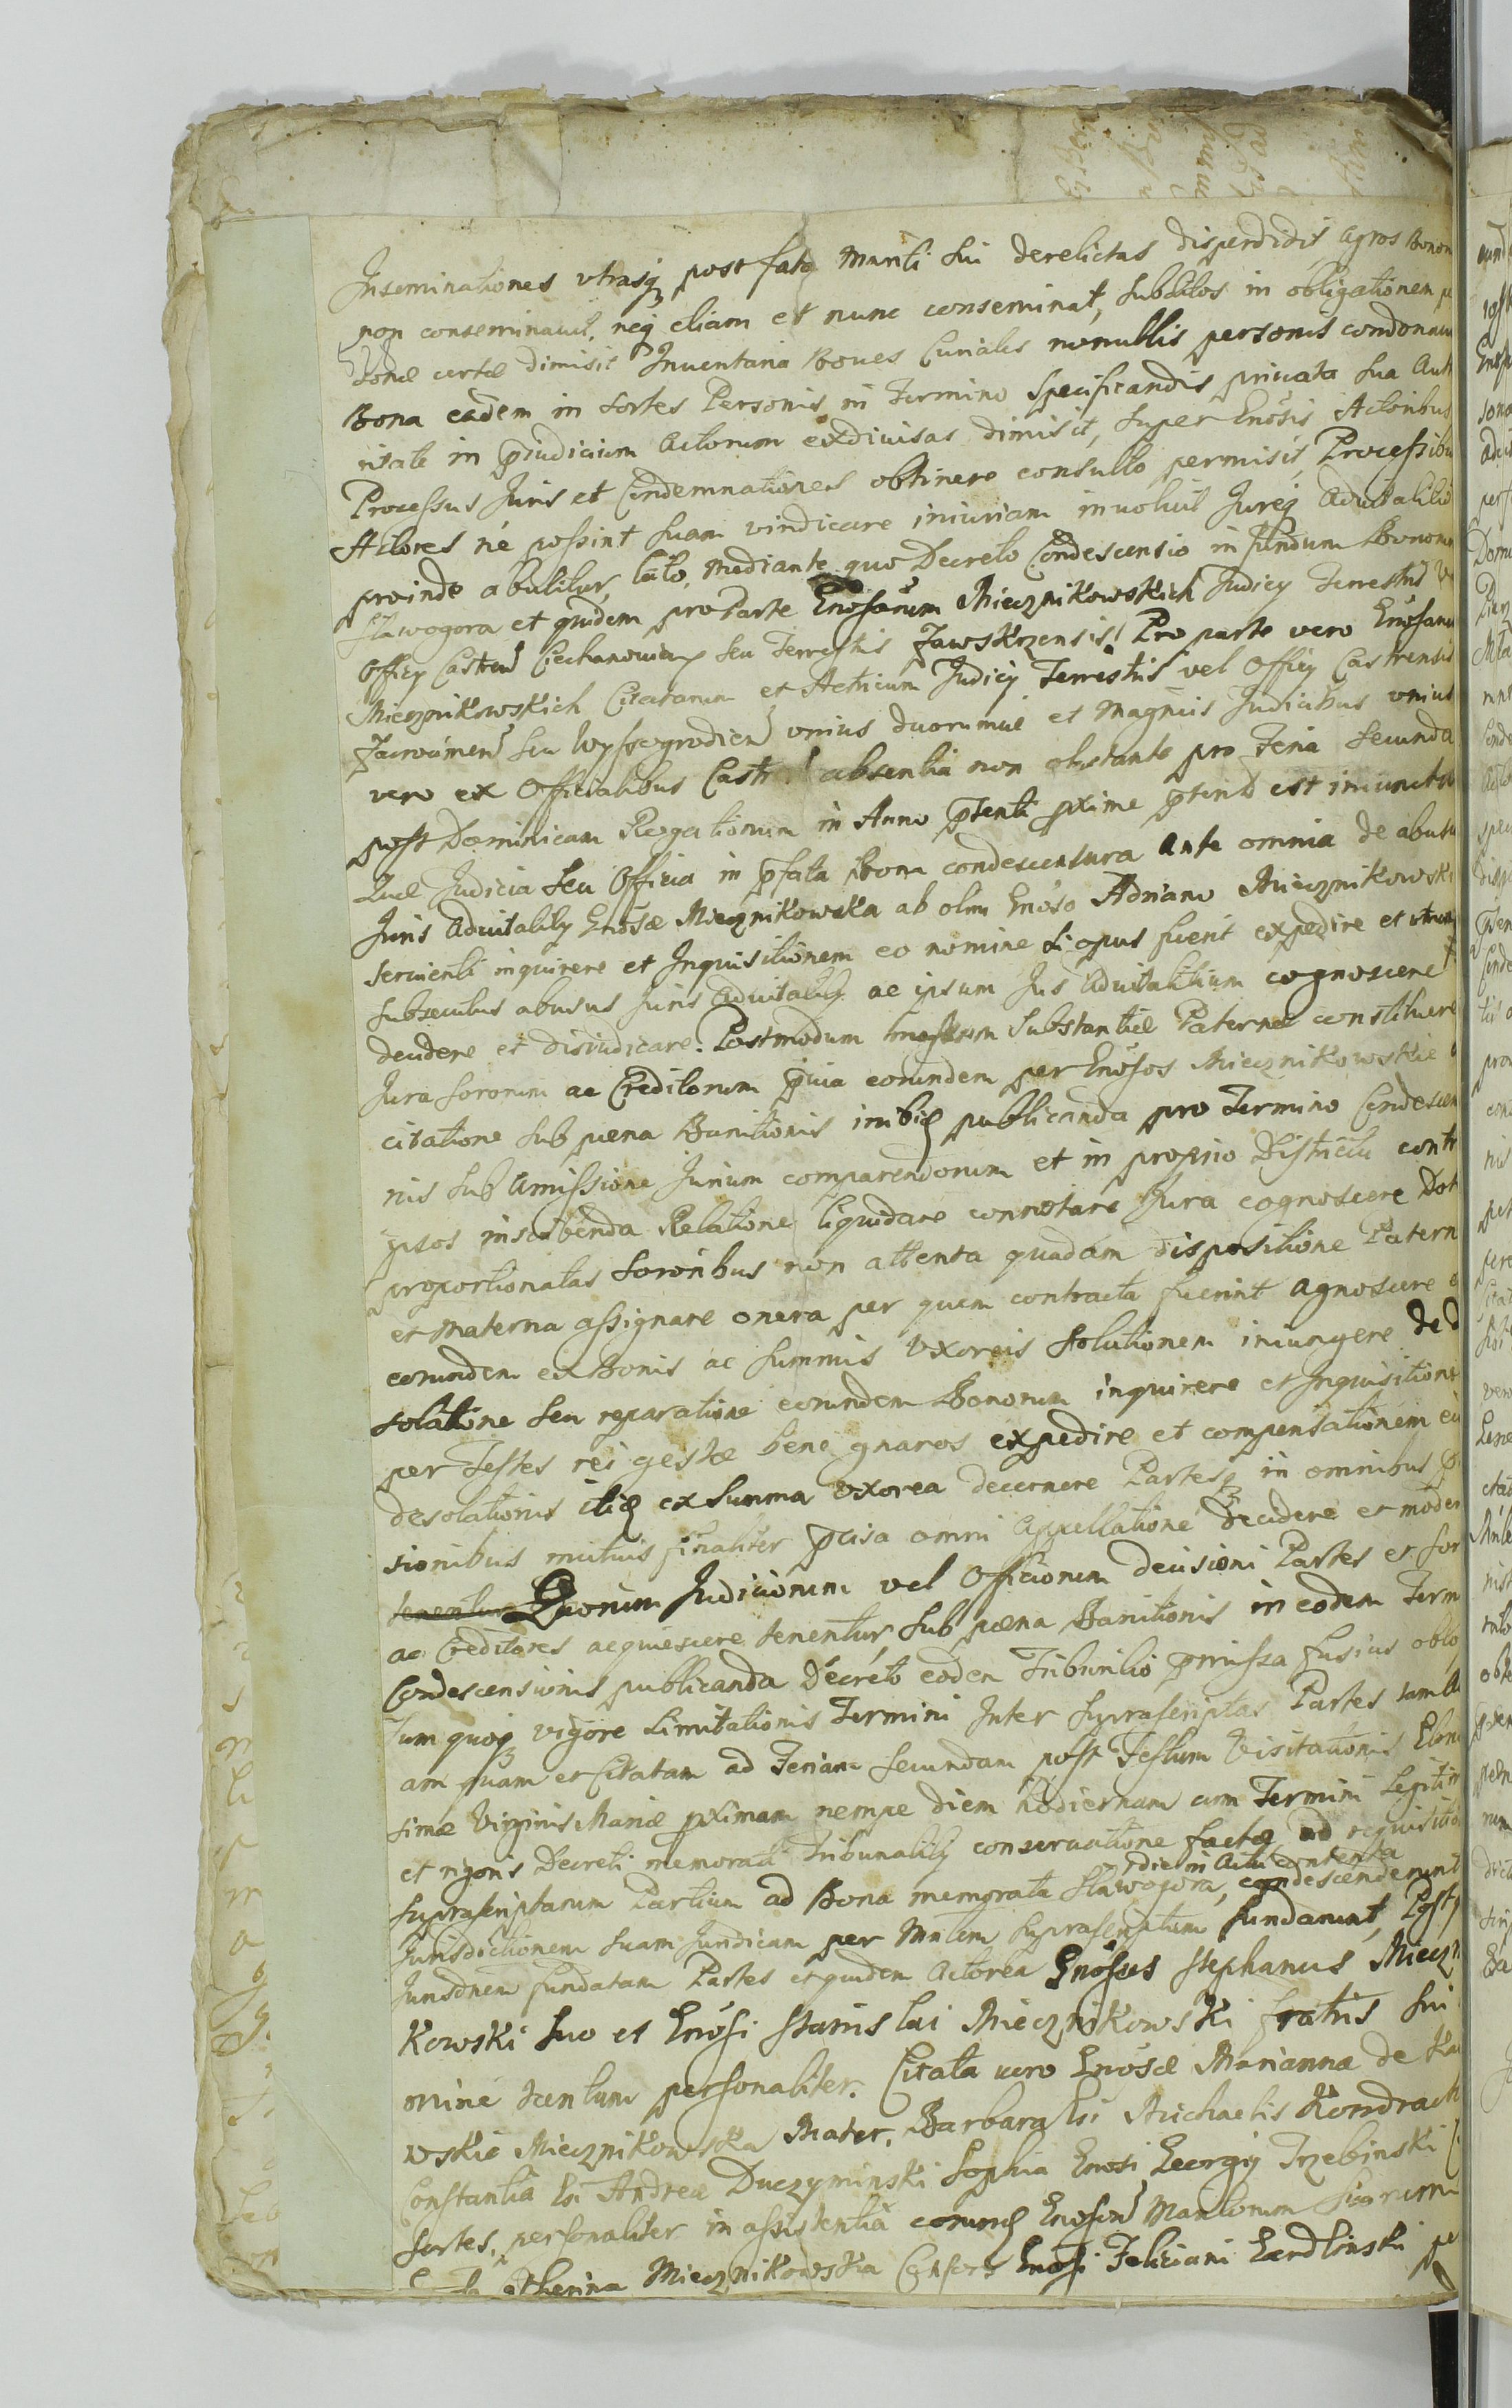 Inseminationes utrasq post fata Mariti sui derelictas disperdidit, agros Bonor
non conseminavit, neq etiam et nunc conseminat, subditos in obligationem
certæ dimisit Inventaria Boves Curiales nonullis personis condonavit
Bona eadem in sortes Personis in Termino specificandis privata sua Auth
ritate in pjudicium Actorum exdivisas dimisit, super Gnosis Actoribus
Processus Juris et Condemnationes obtinere consulto permisit, Processibus
Actores né possint suam vindicare iniuriam involuit Jureq advitalitio
proinde abutitur, lato, mediante quo Decreto Condescensio in fundum Bonorum
Sławogora et quidem pro Parte Gnosorum Miecznikowskich Judicy Terrestris
Officy Castren Ciechanovien seu Terrestris Zawskrzensis! Pro parte vero Gnosarum
Mieczniknowskich Citatarum et Actricum Judicy Terrestris vel Officy Castrensis
Zacroćimen seu Wyssogrodien unius duorumve et Magnis Judicibus unius
vero ex Officialibus Castr absentia non obstante pro Feria secunda
post Dominicam Rogationum in Anno pſenti pxime pterito est iniuncta
Quæ Judicia seu Officia in pfata Bona condescensura ante omnia de abusu
Juris Advitality Gnosæ Mieczniknowska ab olim Gnoso Adriano Mieczniknowski
servienti inquirere et Inquisitionem eo nomine si opus fuerit expedire et utrum
subsecutus abusus Juris Advitality ac ipsum Jus Advitalitium cognoscere
decidere et diiudicare. Postmodum Substantiæ Paternæ constituere
Jura sororum ac Creditorum pvia eorundem per Gnosos Mieczniknowskie
citatione sub pæna Banitionis inibiq publicanda pro Termino Condescen
nis sub amissione Jurium comparendorum et in proprio Districtu contr
ipsos inscribenda Relatione liquidare connotare Jura cognoscere Dot
proportionatas sororibus non attenta quadam dispositione Patern
et Materna assignare onera per quem contracta fuerint agnoscere
eorundem ex Bonis ac summis Uxoreis solutionem iniungere de d
solatione seu reparatione eorundem Bonorum inquirere et Inquisitione
per Testes rei gestæ bene gnaros expedire et compensationem
desolationis itiq ex summa uxorea decernere Partesq in omnibus
sionibus mutuis finaliter pcisa omni Appellatione decidere et moder
tenentur Quorum Judiciorum vel Officiorum decisioni Partes et sor
ac Creditores acquiescere tenentur, sub pæna Banitionis in eodem Term
Condescensionis publicanda Decreto eodem Tribunitio pmissa fusius oblo
Tum quoq vigore Limitationis Termini Inter suprascriptas Partes tam
am quam et Citatam ad Feriam secundam post Festum Visitationis
simæ Virginis Mariæ pximam nempe diem hodiernam cum Termini Legitim
et rigoris Decreti memorati Tribunality conservatione factæ ad requisition
die in Actu contenta
suprascriptarum Partium ad Bona memorata Sławogora, condescenderunt
Jurisdictionem suam Juridicam per Mnlem suprascriptum fundarunt, Post
Jurisdnem fundatam Partes et quidem Actorea Gnosus Stephanus Miecz
kowski suo et Gnosi Stanislai Mieczniknowski fratris sui
omine tantum personaliter. Citata vero Gnosæ Marianna de
wskie Mieczniknowska Mater, Barbara Gsi Michaelis Kondrack
Constantia Gsi Andreæ Duczyminski Sophia Gnosi Georgy Trzebinski
sortes, personaliter in assistentia eorumq Gnosorum Maritorum suorum
atherina Mieczniknowska Consors Gnosi Feliciani